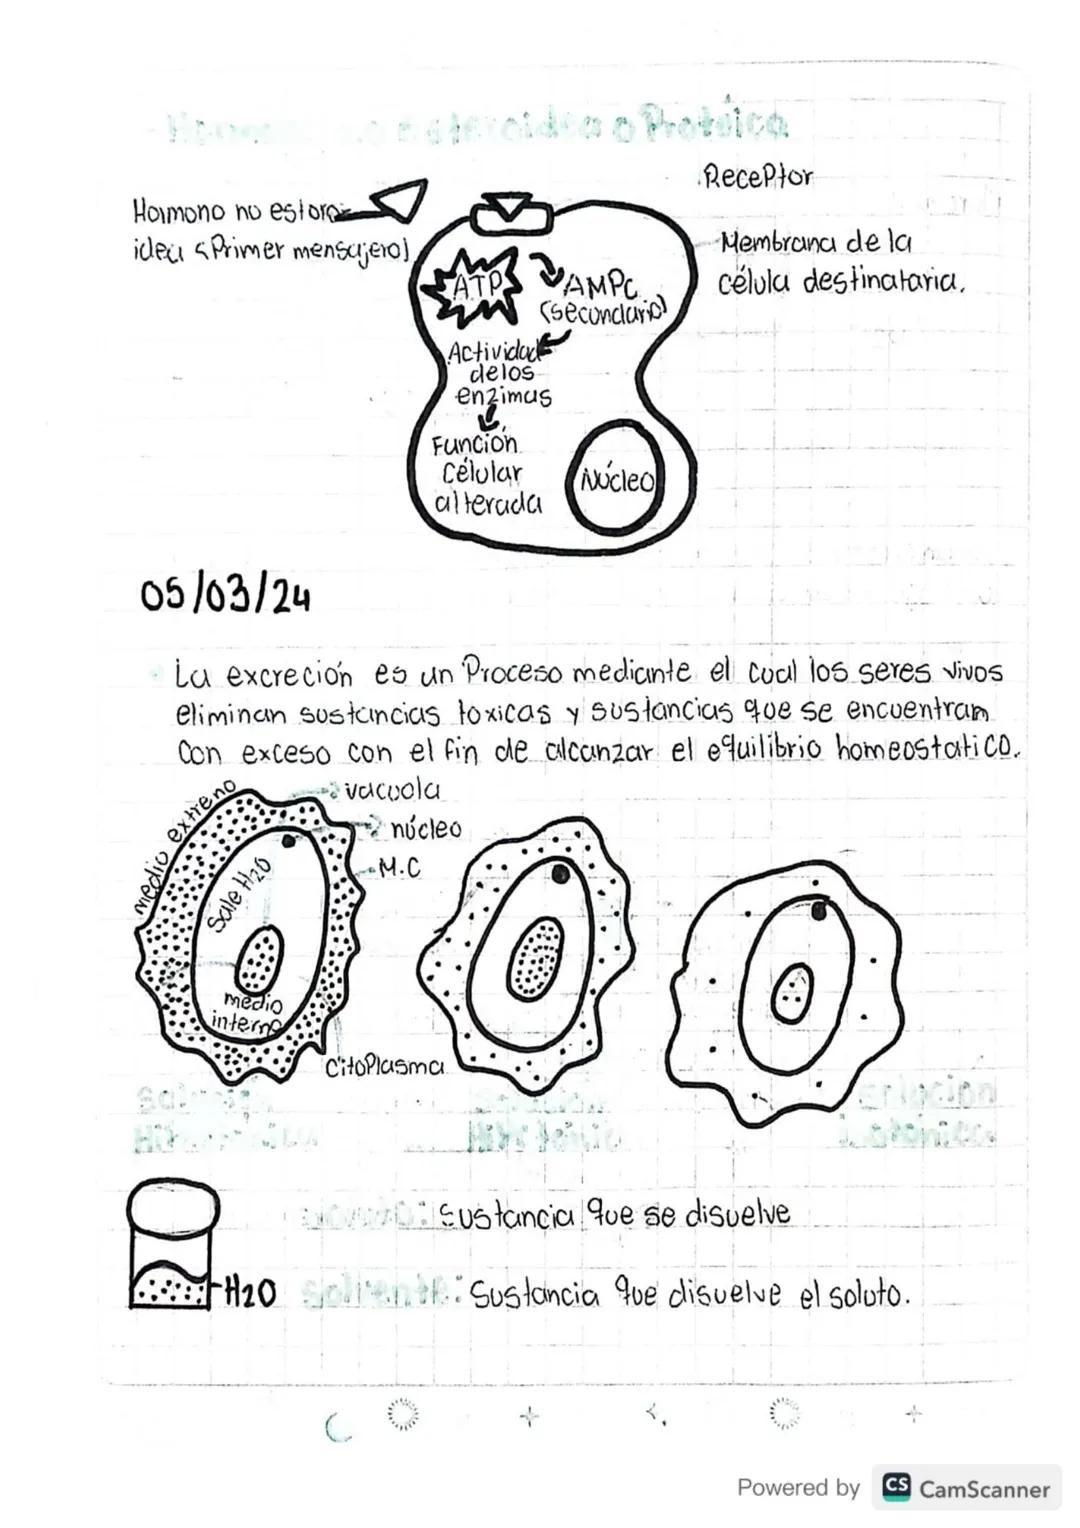 o Proteica
Receptor
Hormono no estoro-
idea (Primer mensajero)
Membrana de la
célula destinataria.
ATP
AMPc
(secundario)
Actividad
de los
enzimas
Función
Célular
alterada
Núcleo
05/03/24
La excreción es un Proceso mediante el cual los seres vivos
eliminan sustancias toxicas y sustancias que se encuentram
Con exceso con el fin de alcanzar el equilibrio homeostatico.
medio extreno
vacuola
núcleo
M.C
Sale H2O
medio
interno
CitoPlasma
solución
Sustancia que se disuelve
H2O
solvente: Sustancia que disuelve el soluto.
Powered by CS CamScanner